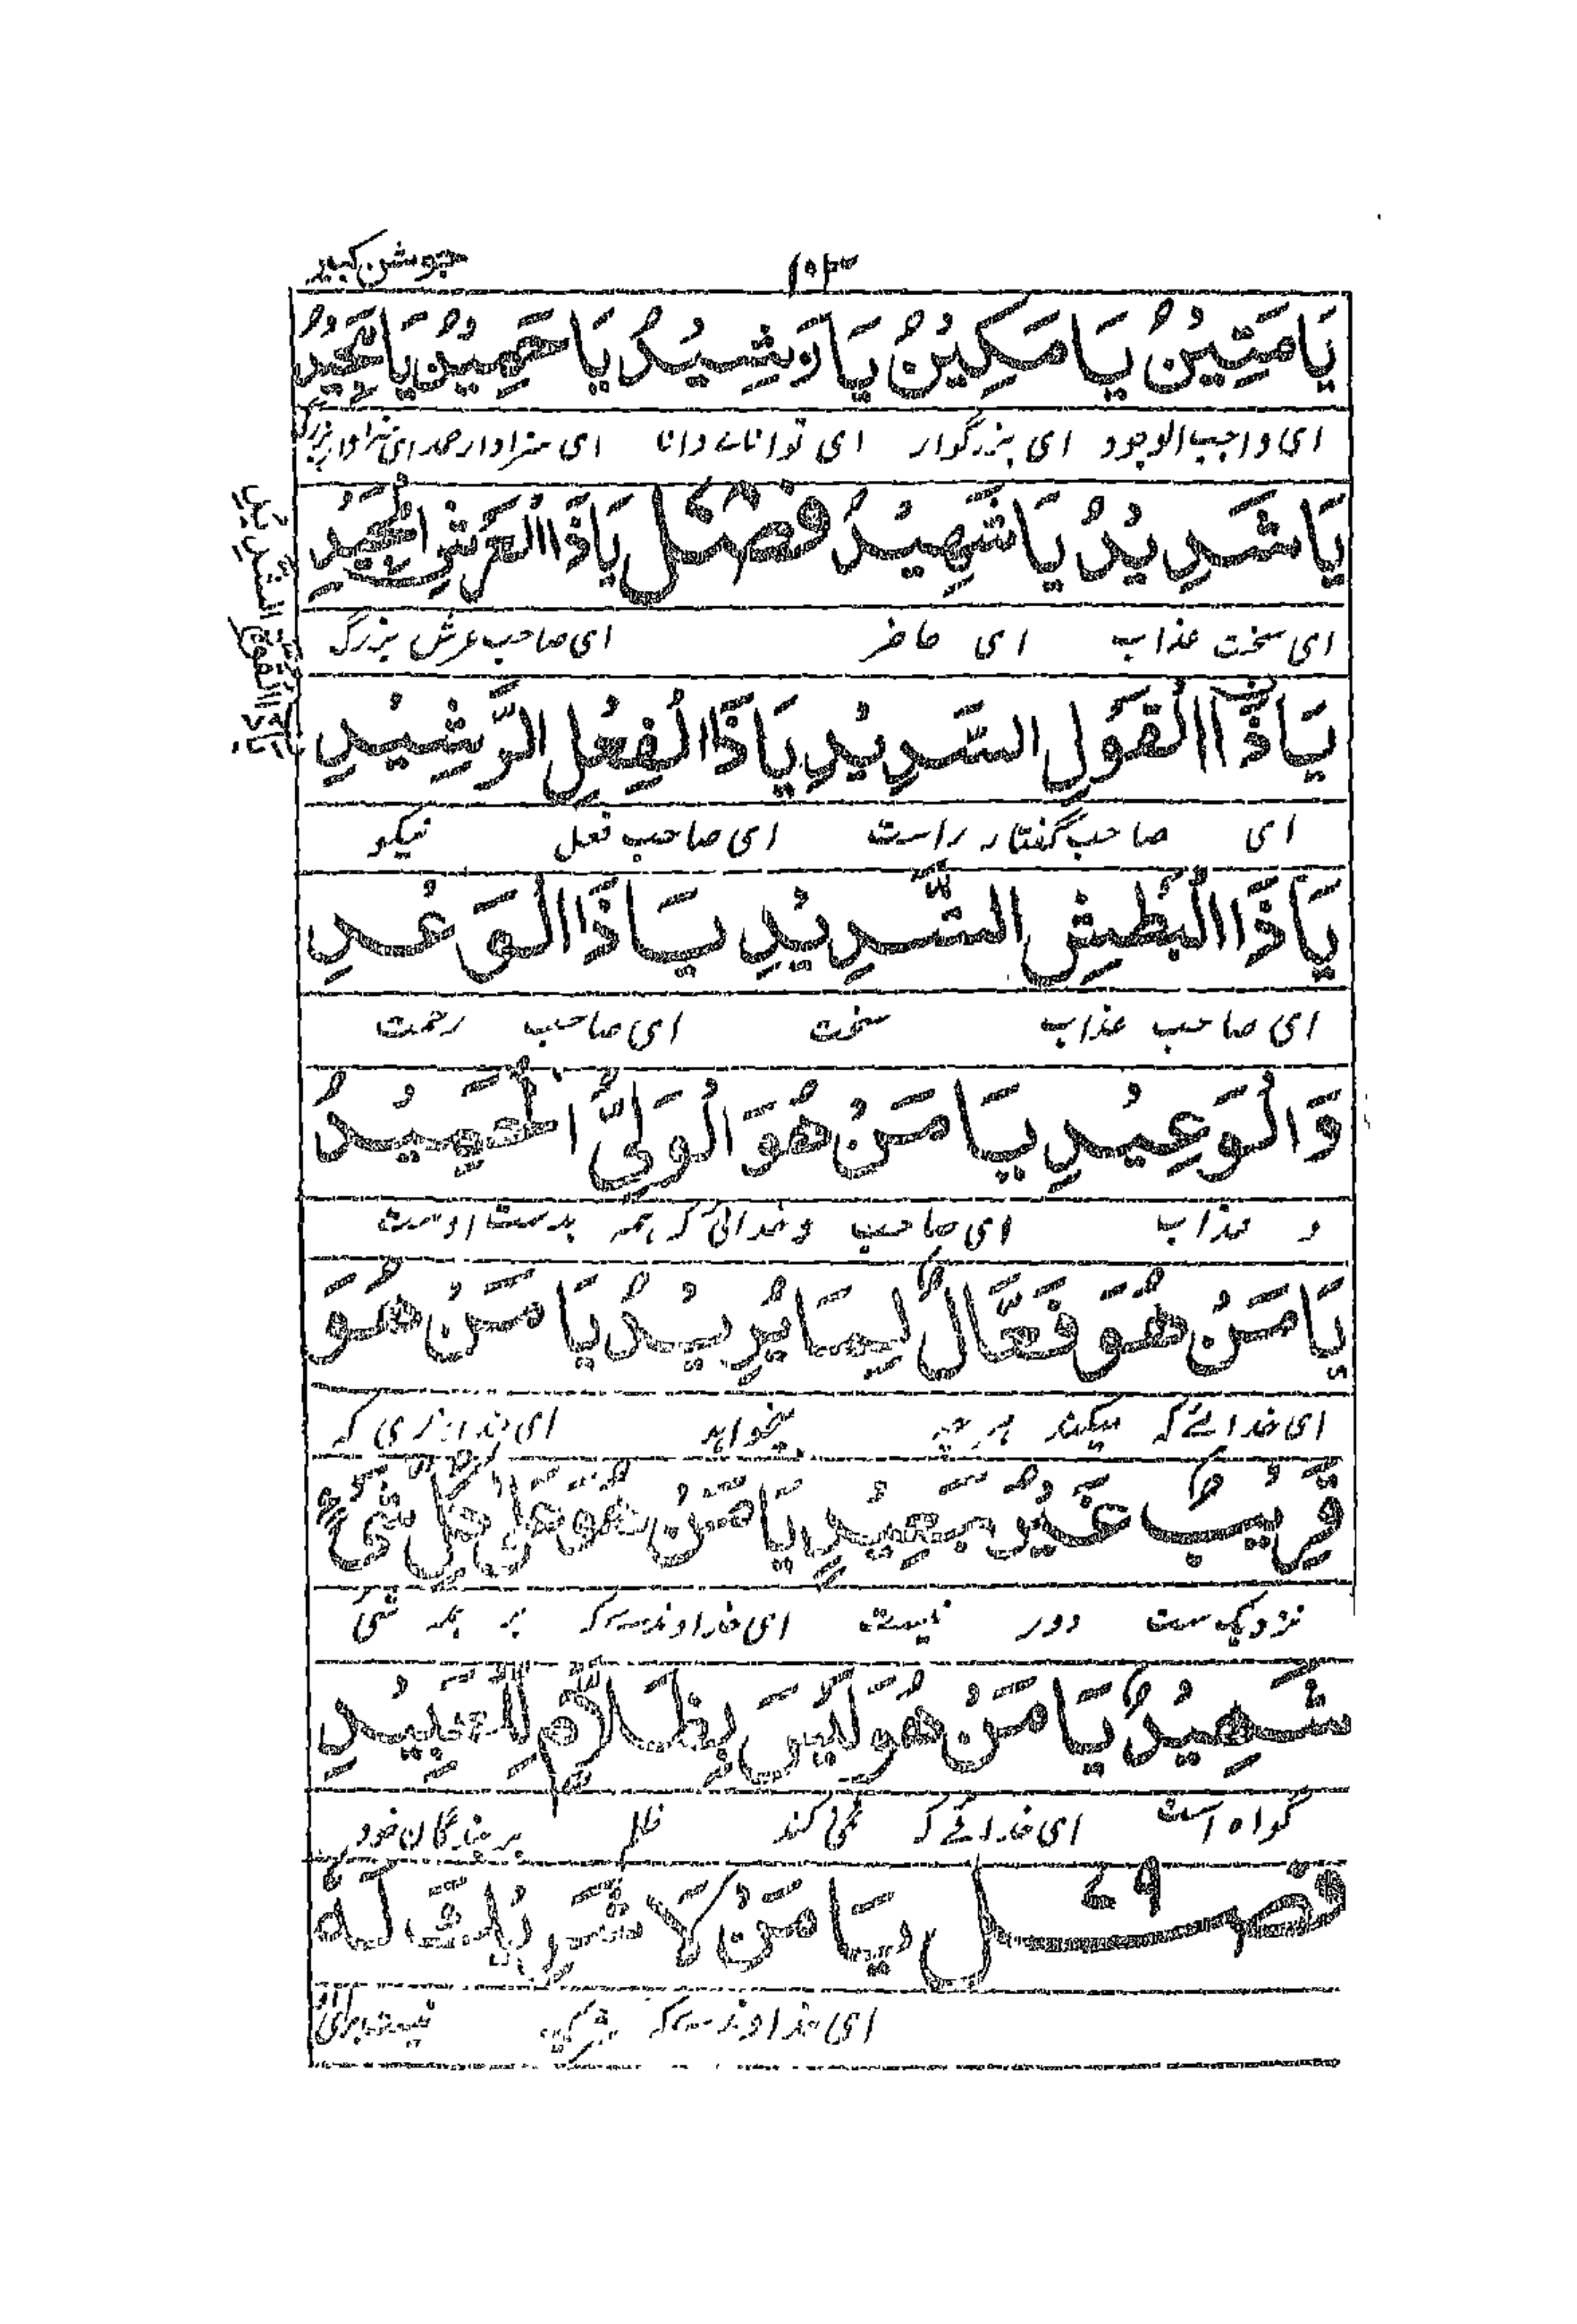 جوشن کبیر
۱۰۳
يَا مَتِينُ يَا مَكِينُ يَا رَشِيدُ يَا حَمِيدُ يَا مَجِيدُ
ای واجب الوجود ای بزرگوار ای توانائے دانا ای سزاوار حمد ای سزاوار بزرگی
يَا شَدِيدُ يَا شَهِيدُ فصل ۶۸ يَا ذَا الْعَرْشِ الْمَجِيدِ
ای سخت عذاب ای حاضر ای صاحب عرش بزرگ
يَا ذَا الْقَوْلِ السَّدِيدِ يَا ذَا الْفِعْلِ الرَّشِيدِ
ای صاحب گفتار راست ای صاحب فعل نیکو
يَا ذَا الْبَطْشِ الشَّدِيدِ يَا ذَا الْوَعْدِ
ای صاحب عذاب سخت ای صاحب رحمت
وَالْوَعِيدِ يَا مَنْ هُوَ الْوَلِيُّ الْحَمِيدُ
و عذاب ای صاحب و خدائی که همه بدست اوست
يَا مَنْ هُوَ فَعَّالٌ لِمَا يُرِيدُ يَا مَنْ هُوَ
ای خدائے که میکند هر چه میخواهد ای خداوندی که
قَرِيبٌ غَيْرُ بَعِيدٍ يَا مَنْ هُوَ عَلَى كُلِّ شَيْءٍ
نزدیک ست دور نیست ای خداوندے که بر همه شی
شَهِيدٌ يَا مَنْ هُوَ لَيْسَ بِظَلَّامٍ لِلْعَبِيدِ
گواه است ای خدائے که نمی کند ظلم بر بندگان خود
فصل ۶۹ يَا مَنْ لَا شَرِيكَ لَهُ
ای خداوندے که شریک نیست برای